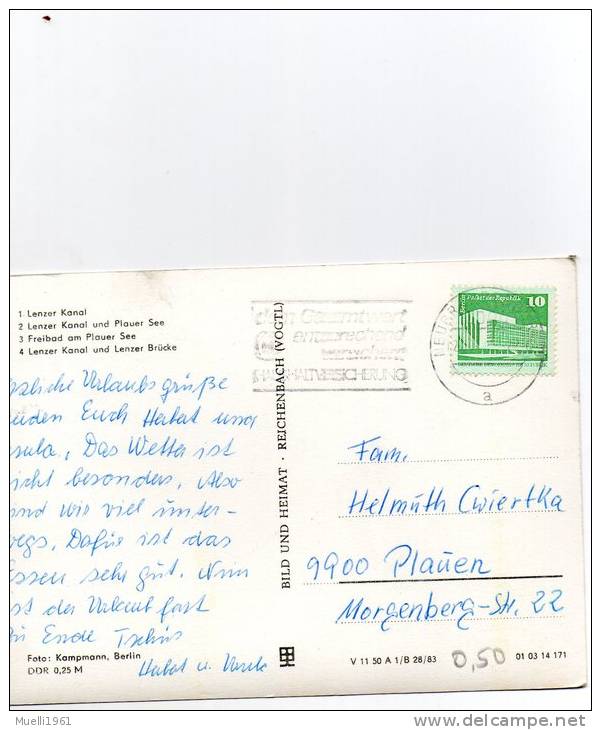 1 Lenzer Kanal
2 Lenzer Kanal und Plauer See
3 Freibad am Plauer See
4 Lenzer Kanal und Lenzer Brücke
rzliche Urlaubsgrüße
nden Euch Habat und
sula. Das Wetter ist
icht besonders. Also
nd wir viel unter-
wegs. Dafür ist das
Essen sehr gut. Nun
st der Urlaub fast
zu Ende Tschüs
Habat u.
Foto: Kampmann, Berlin
DDR 0,25 M
BILD UND HEIMAT · REICHENBACH (VOGTL)
dem Gesamtwert
entsprechend
HAUSHALTVERSICHERUNG
NEUBR
a
Berlin, Palast der Republik
10
Fam.
Helmuth Cwiertka
9900 Plauen
Morgenberg-Str. 22
V 11 50 A 1/B 28/83
0,50
01 03 14 171
Muelli1961
www.delcampe.net